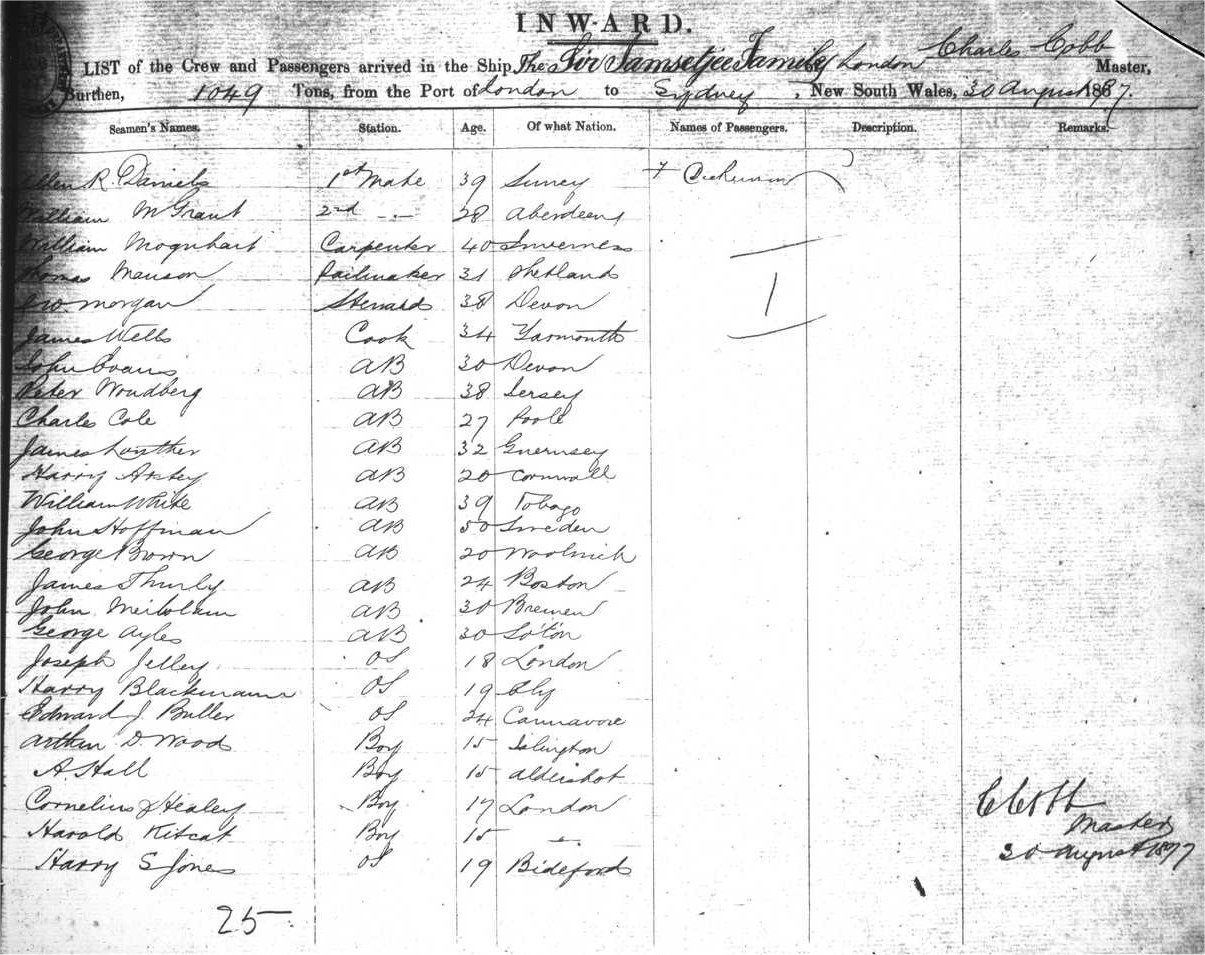 INWARD.
LIST of the Crew and Passengers arrived in the Ship The Sir Jamsetjee Family of London Charles Cobb Master,
Burthen, 1049 Tons, from the Port of London to Sydney, New South Wales, 30 August 1897.
Seamen's Names. Station. Age. Of what Nation. Names of Passengers. Description. Remarks.
R. Daniels 1st Mate 39 Surrey
William McGrant 2nd -"- 28 Aberdeen
William Carpenter 40 Inverness
Thomas Manson Sailmaker 31 Shetland
Geo. Morgan Steward 38 Devon
I
James Wells Cook 34 Yarmouth
John Evans AB 30 Devon
Peter Woudberg AB 38 Jersey
Charles Cole AB 27 Poole
James AB 32 Guernsey
Harry AB 20 Cornwall
William White AB 39 Tobago
John Hoffman AB 50 Sweden
George Brown AB 20 Woolwich
James Thurly AB 24 Boston
John AB 30 Bremen
George Ayles AB 30 So'ton
Joseph Jelley OS 18 London
Harry Blackmann OS 19 Ely
Edward J. Buller OS 24
Arthur D. Wood Boy 15 Islington
A. Hall Boy 15 Aldershot
Cornelius J Healey Boy 17 London
Harold Kitcat Boy 15 -"-
Harry S Jones OS 19 Bideford
25
C Cobb
Master
30 August 1897